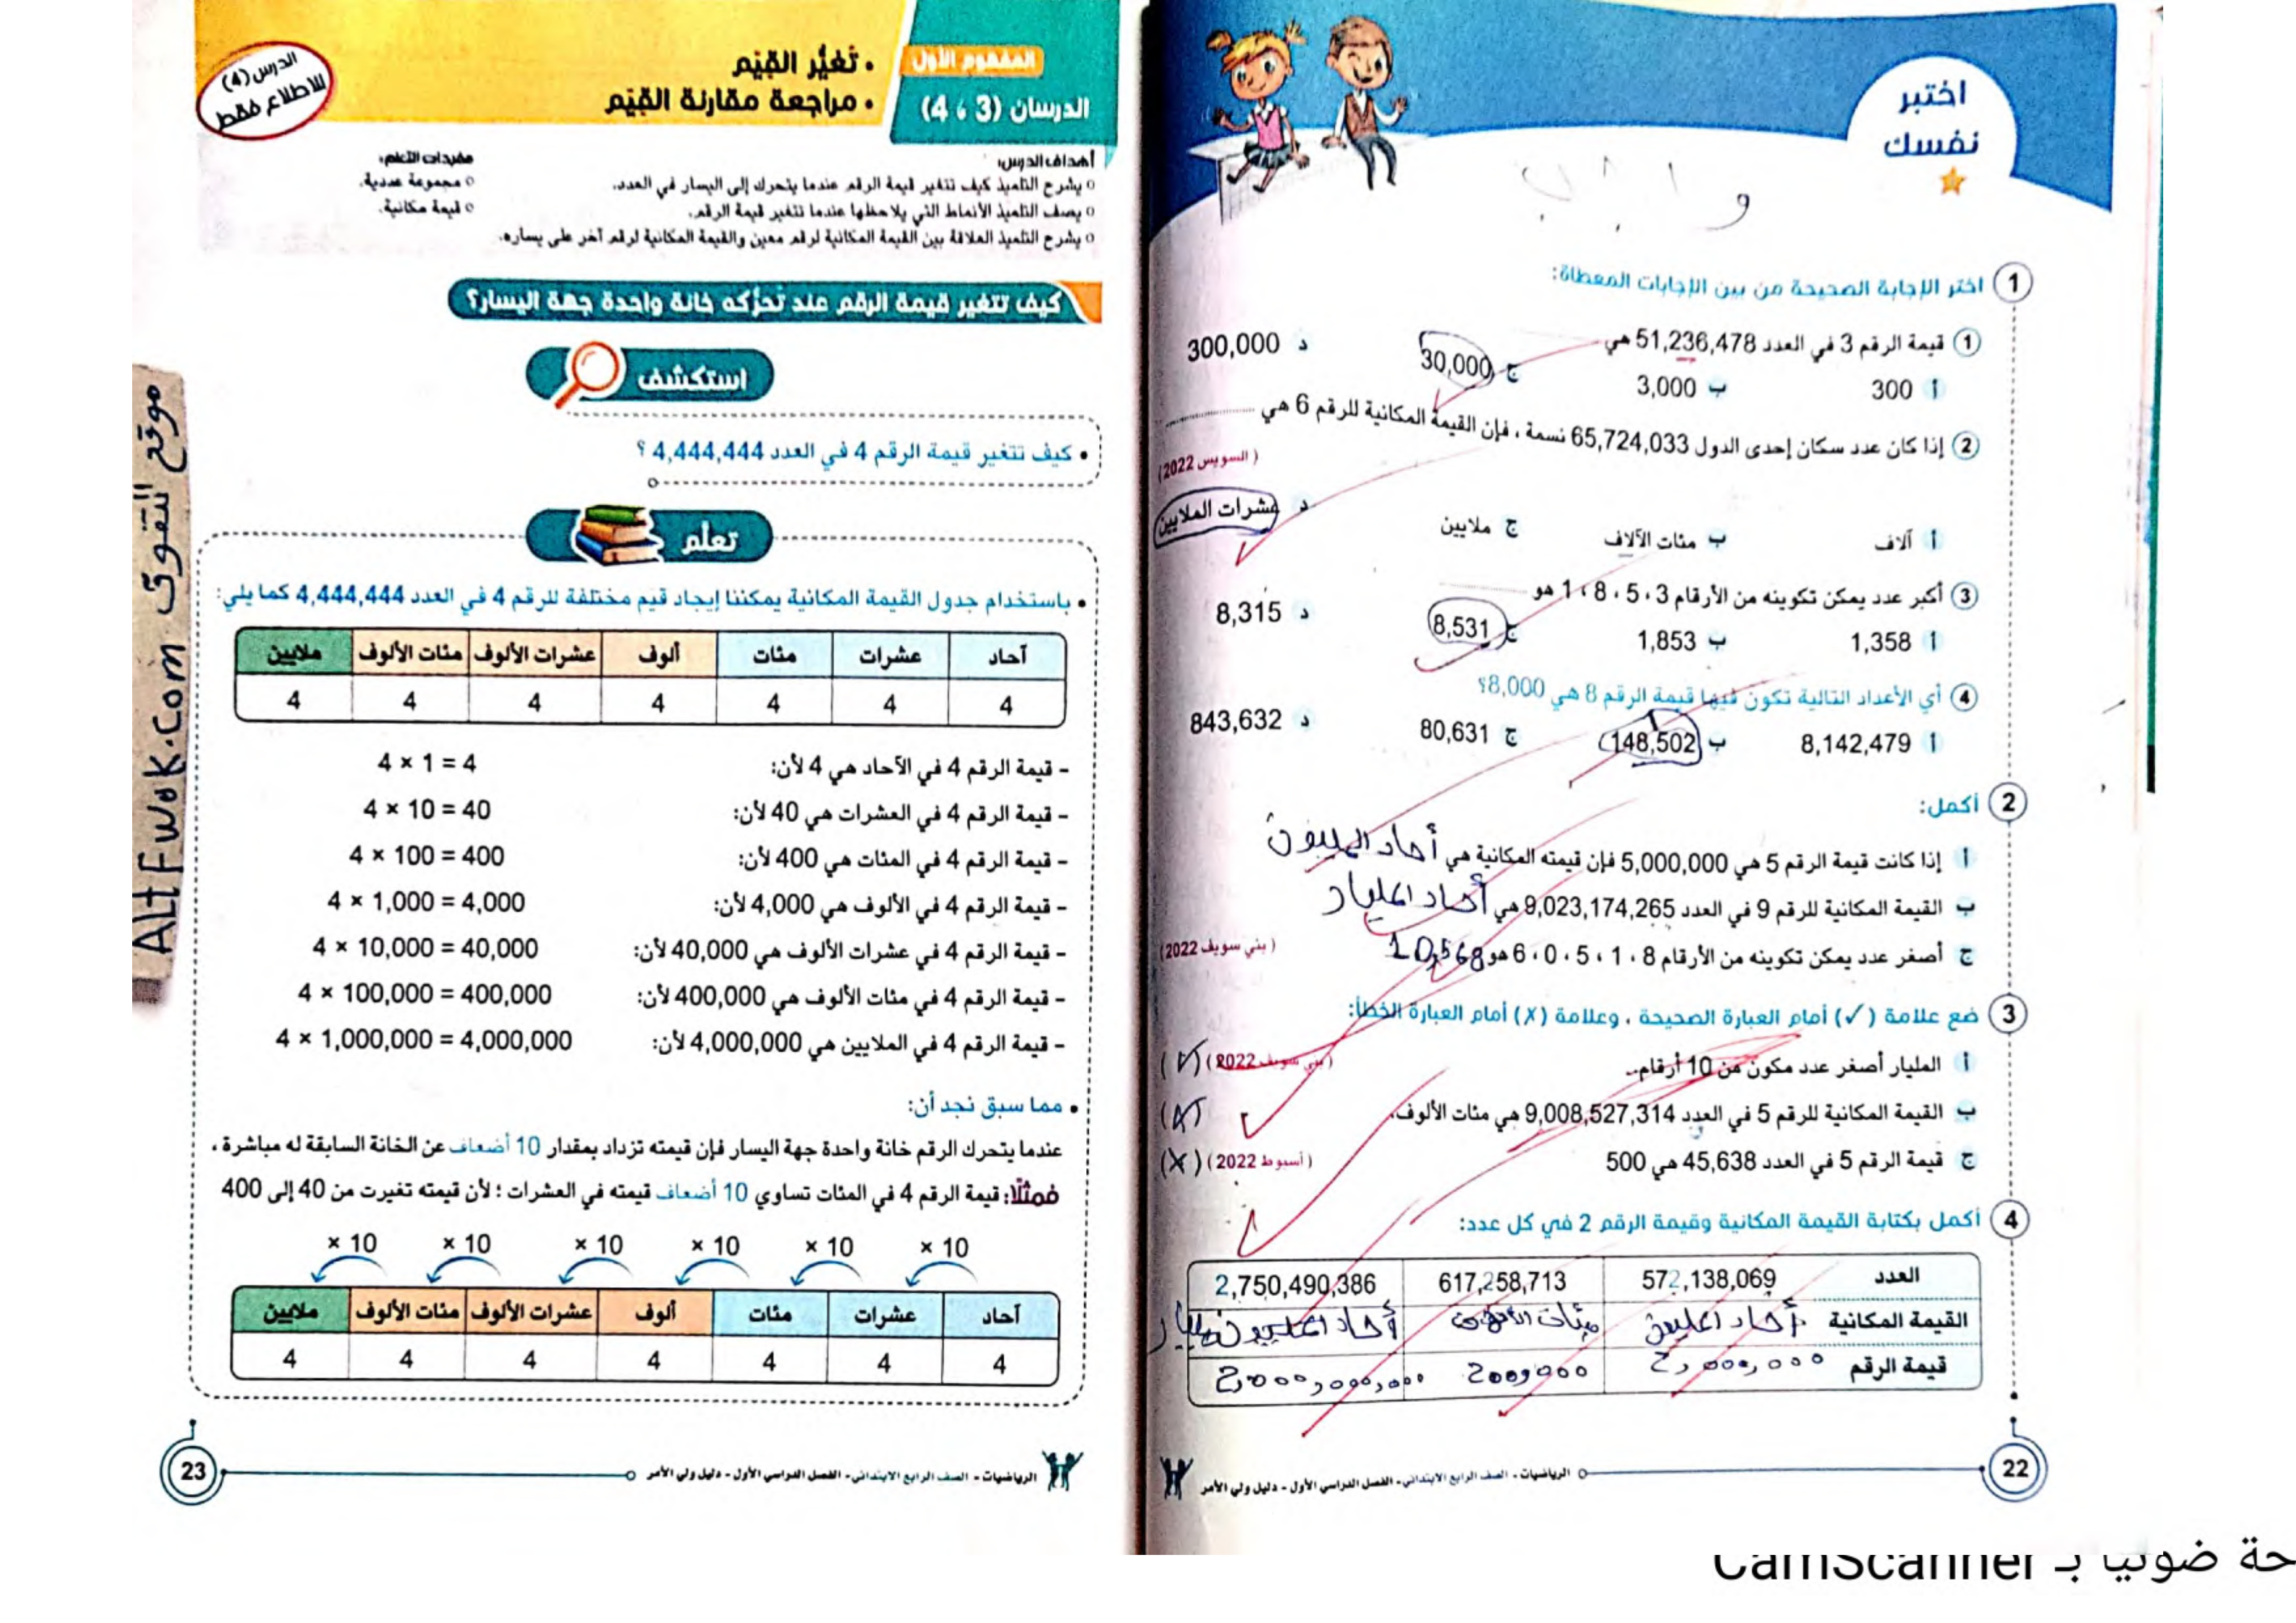 اختبر
نفسك
واجب
1 اختر الإجابة الصحيحة من بين الإجابات المعطاة:
1 قيمة الرقم 3 في العدد 51,236,478 هي
أ 300 ب 3,000 ج 30,000 د 300,000
2 إذا كان عدد سكان إحدى الدول 65,724,033 نسمة ، فإن القيمة المكانية للرقم 6 هي ............
(السويس 2022)
أ آلاف ب مئات الآلاف ج ملايين د عشرات الملايين
3 أكبر عدد يمكن تكوينه من الأرقام 3 ، 5 ، 8 ، 1 هو
أ 1,358 ب 1,853 ج 8,531 د 8,315
4 أي الأعداد التالية تكون فيها قيمة الرقم 8 هي 8,000؟
أ 8,142,479 ب 148,502 ج 80,631 د 843,632
2 أكمل:
أ إذا كانت قيمة الرقم 5 هي 5,000,000 فإن قيمته المكانية هي أحاد المليون
ب القيمة المكانية للرقم 9 في العدد 9,023,174,265 هي أحاد المليار
ج أصغر عدد يمكن تكوينه من الأرقام 8 ، 1 ، 5 ، 0 ، 6 هو 10,568 (بني سويف 2022)
3 ضع علامة (✓) أمام العبارة الصحيحة ، وعلامة (✗) أمام العبارة الخطأ:
أ المليار أصغر عدد مكون من 10 أرقام. (بني سويف 2022) (✓)
ب القيمة المكانية للرقم 5 في العدد 9,008,527,314 هي مئات الألوف.
ج قيمة الرقم 5 في العدد 45,638 هي 500 (أسيوط 2022) (X)
4 أكمل بكتابة القيمة المكانية وقيمة الرقم 2 في كل عدد:
العدد 572,138,069 617,258,713 2,750,490,386
القيمة المكانية أحاد المليون مئات الألوف أحاد المليار
قيمة الرقم 2,000,000 200,000 2,000,000,000
22 الرياضيات - الصف الرابع الابتدائي - الفصل الدراسي الأول - دليل ولي الأمر
المفهوم الأول
الدرسان (3 ، 4)
• تغيُّر القيَم
• مراجعة مقارنة القيَم
الدرس (4)
للاطلاع فقط
أهداف الدرس:
o يشرح التلميذ كيف تتغير قيمة الرقم عندما يتحرك إلى اليسار في العدد.
o يصف التلميذ الأنماط التي يلاحظها عندما تتغير قيمة الرقم.
o يشرح التلميذ العلاقة بين القيمة المكانية لرقم معين والقيمة المكانية لرقم آخر على يساره.
مفردات التعلم:
o مجموعة عددية.
o قيمة مكانية.
كيف تتغير قيمة الرقم عند تحرُّكه خانة واحدة جهة اليسار؟
استكشف
• كيف تتغير قيمة الرقم 4 في العدد 4,444,444 ؟
تعلم
• باستخدام جدول القيمة المكانية يمكننا إيجاد قيم مختلفة للرقم 4 في العدد 4,444,444 كما يلي:
آحاد عشرات مئات ألوف عشرات الألوف مئات الألوف ملايين
4 4 4 4 4 4 4
- قيمة الرقم 4 في الآحاد هي 4 لأن: 4 × 1 = 4
- قيمة الرقم 4 في العشرات هي 40 لأن: 4 × 10 = 40
- قيمة الرقم 4 في المئات هي 400 لأن: 4 × 100 = 400
- قيمة الرقم 4 في الألوف هي 4,000 لأن: 4 × 1,000 = 4,000
- قيمة الرقم 4 في عشرات الألوف هي 40,000 لأن: 4 × 10,000 = 40,000
- قيمة الرقم 4 في مئات الألوف هي 400,000 لأن: 4 × 100,000 = 400,000
- قيمة الرقم 4 في الملايين هي 4,000,000 لأن: 4 × 1,000,000 = 4,000,000
• مما سبق نجد أن:
عندما يتحرك الرقم خانة واحدة جهة اليسار فإن قيمته تزداد بمقدار 10 أضعاف عن الخانة السابقة له مباشرة ،
فمثلًا: قيمة الرقم 4 في المئات تساوي 10 أضعاف قيمته في العشرات ؛ لأن قيمته تغيرت من 40 إلى 400
× 10 × 10 × 10 × 10 × 10 × 10
آحاد عشرات مئات ألوف عشرات الألوف مئات الألوف ملايين
4 4 4 4 4 4 4
الرياضيات - الصف الرابع الابتدائي - الفصل الدراسي الأول - دليل ولي الأمر 23
موقع التفوق ALtFwoK.com
حة ضوئيا بـ CamScanner